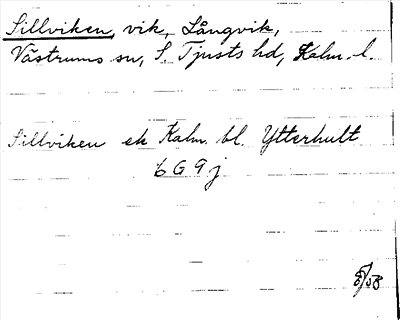 Sillviken, vik, Långvik,
Västrums sn, S. Tjusts hd, Kalm. l.
Sillviken ek Kalm. bl. Ytterhult
6 G 9 j